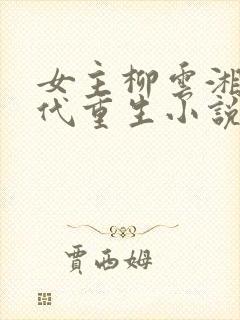 女主柳云湘
代重生小説
賈西姆